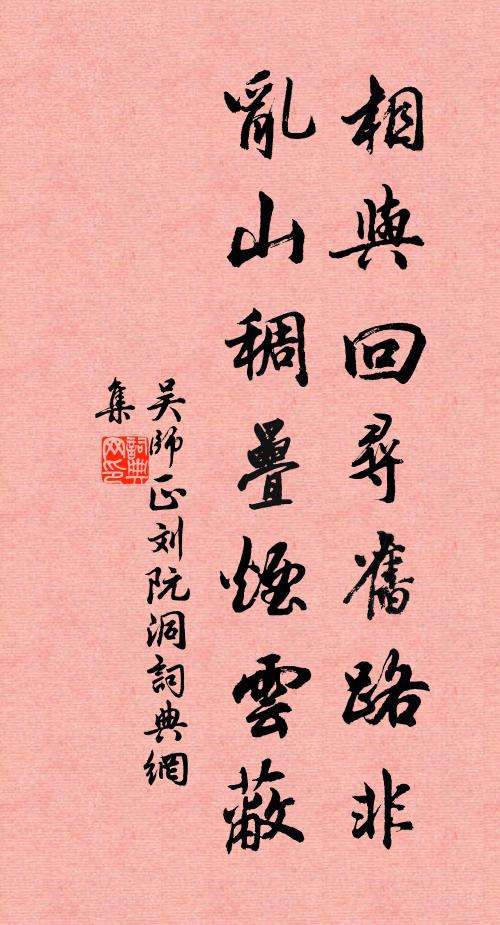 相與回尋舊路非
亂山稠疊煙雲蔽
吴師正刘阮洞詞典網
集
詞典网印